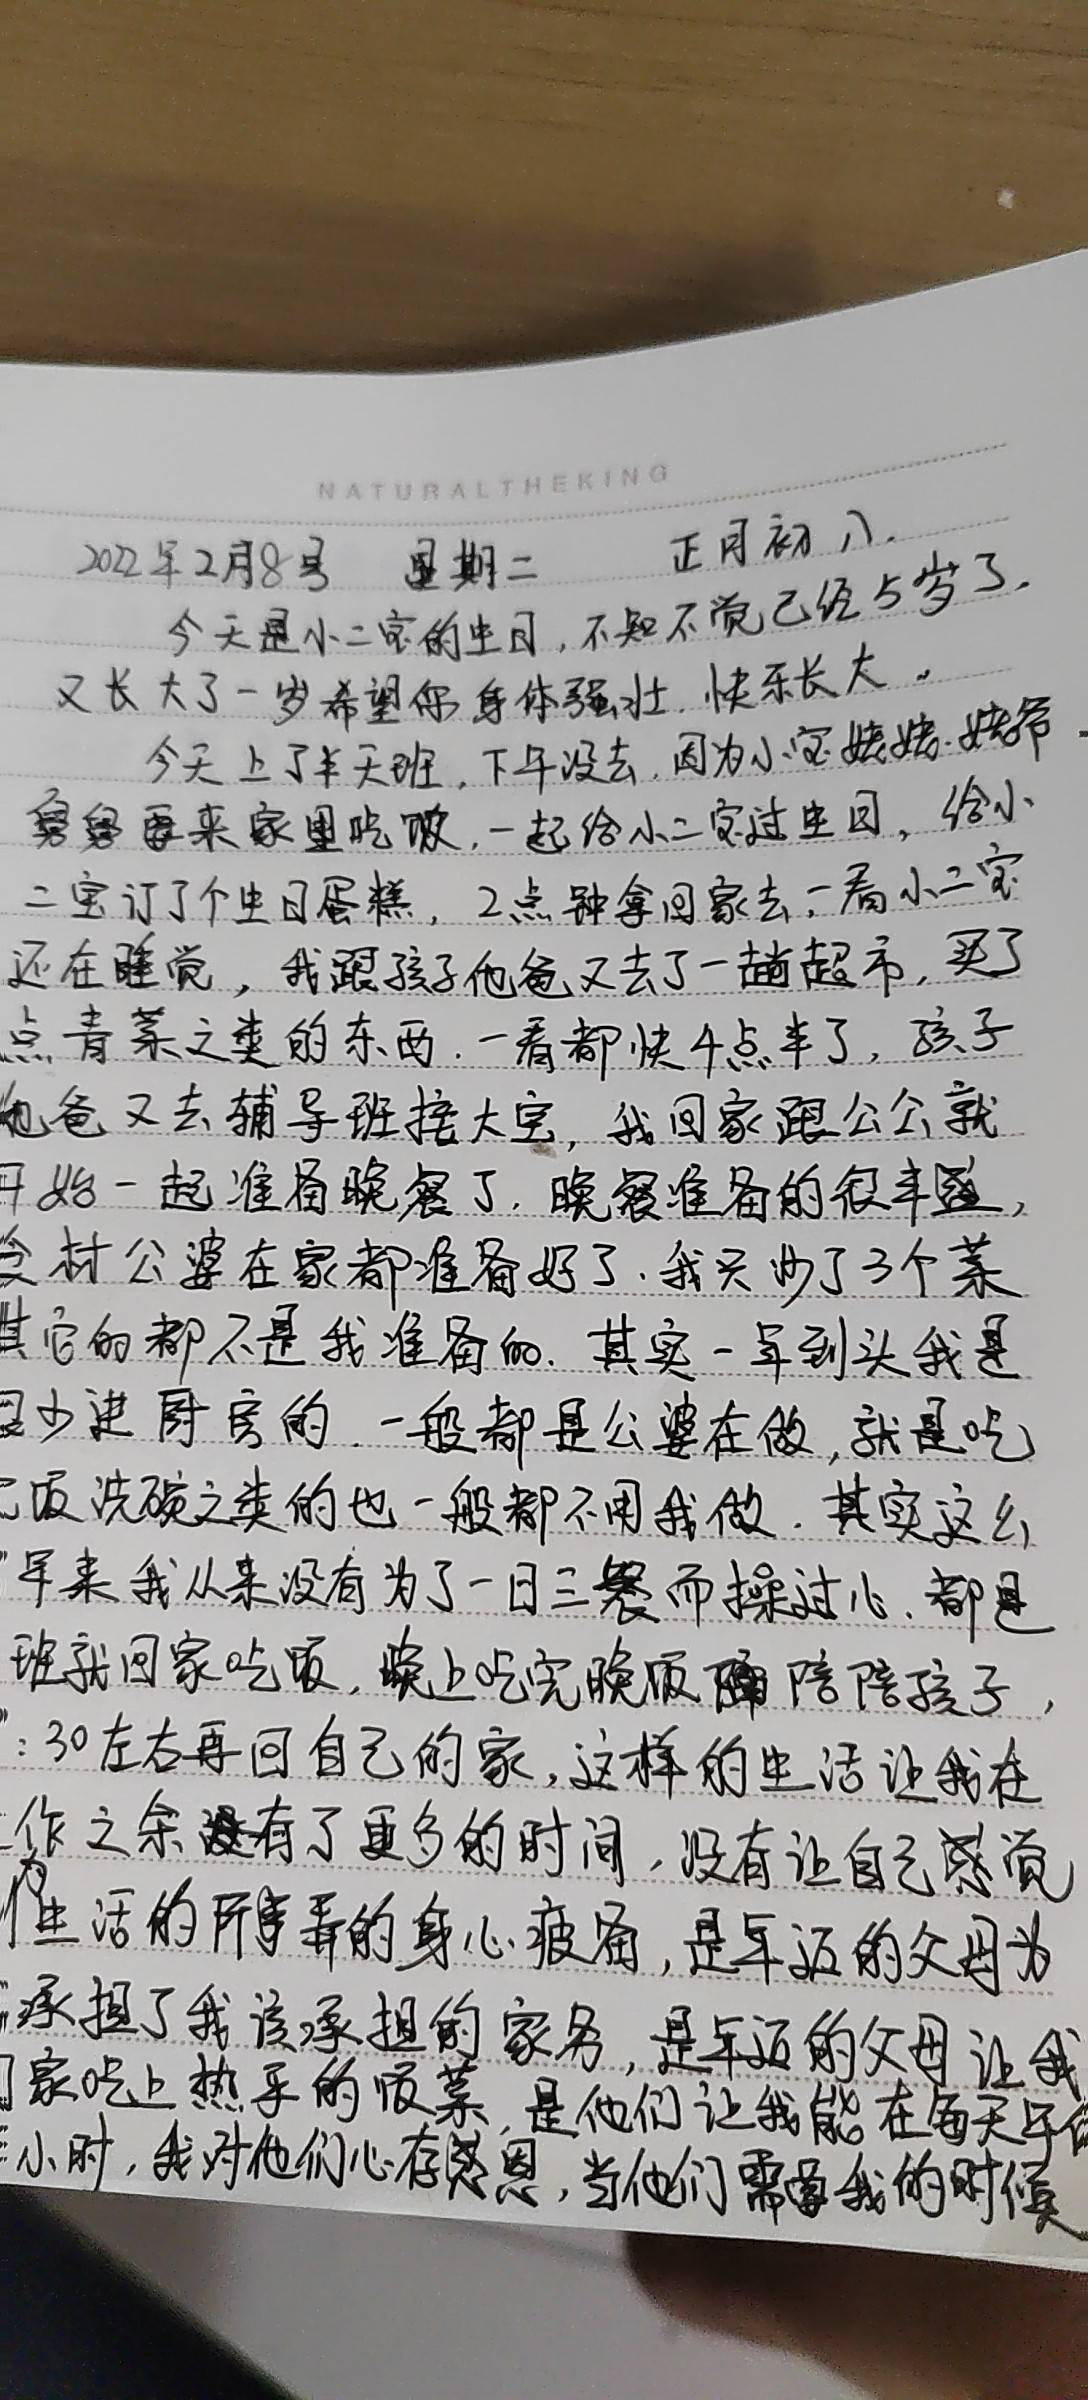 NATURALTHEKING
2022年2月8号 星期二 正月初八.
今天是小二宝的生日,不知不觉已经5岁了.
又长大了一岁希望你身体强壮.快乐长大。
今天上了半天班,下午没去,因为小宝姨姨.姨爷
舅舅要来家里吃饭,一起给小二宝过生日,给小
二宝订了个生日蛋糕,2点钟拿回家去,一看小二宝
还在睡觉,我跟孩子他爸又去了一趟超市,买了
点青菜之类的东西.一看都快4点半了,孩子
他爸又去辅导班接大宝,我回家跟公公就
开始一起准备晚餐了.晚餐准备的很丰盛,
食材公婆在家都准备好了.我只炒了3个菜
其它的都不是我准备的.其实一年到头我是
很少进厨房的.一般都是公婆在做,就是吃
饭洗碗之类的也一般都不用我做.其实这么
年来我从来没有为了一日三餐而操过心.都是
班就回家吃饭,晚上吃完晚饭 陪陪孩子,
:30左右再回自己的家,这样的生活让我在
作之余 有了更多的时间,没有让自己感觉
为生活的所 的身心疲备,是年迈的父母为
承担了我该承担的家务,是年迈的父母让我
家吃上热乎的饭菜,是他们让我能在每天午
小时,我对他们心存感恩,当他们需要我的时候